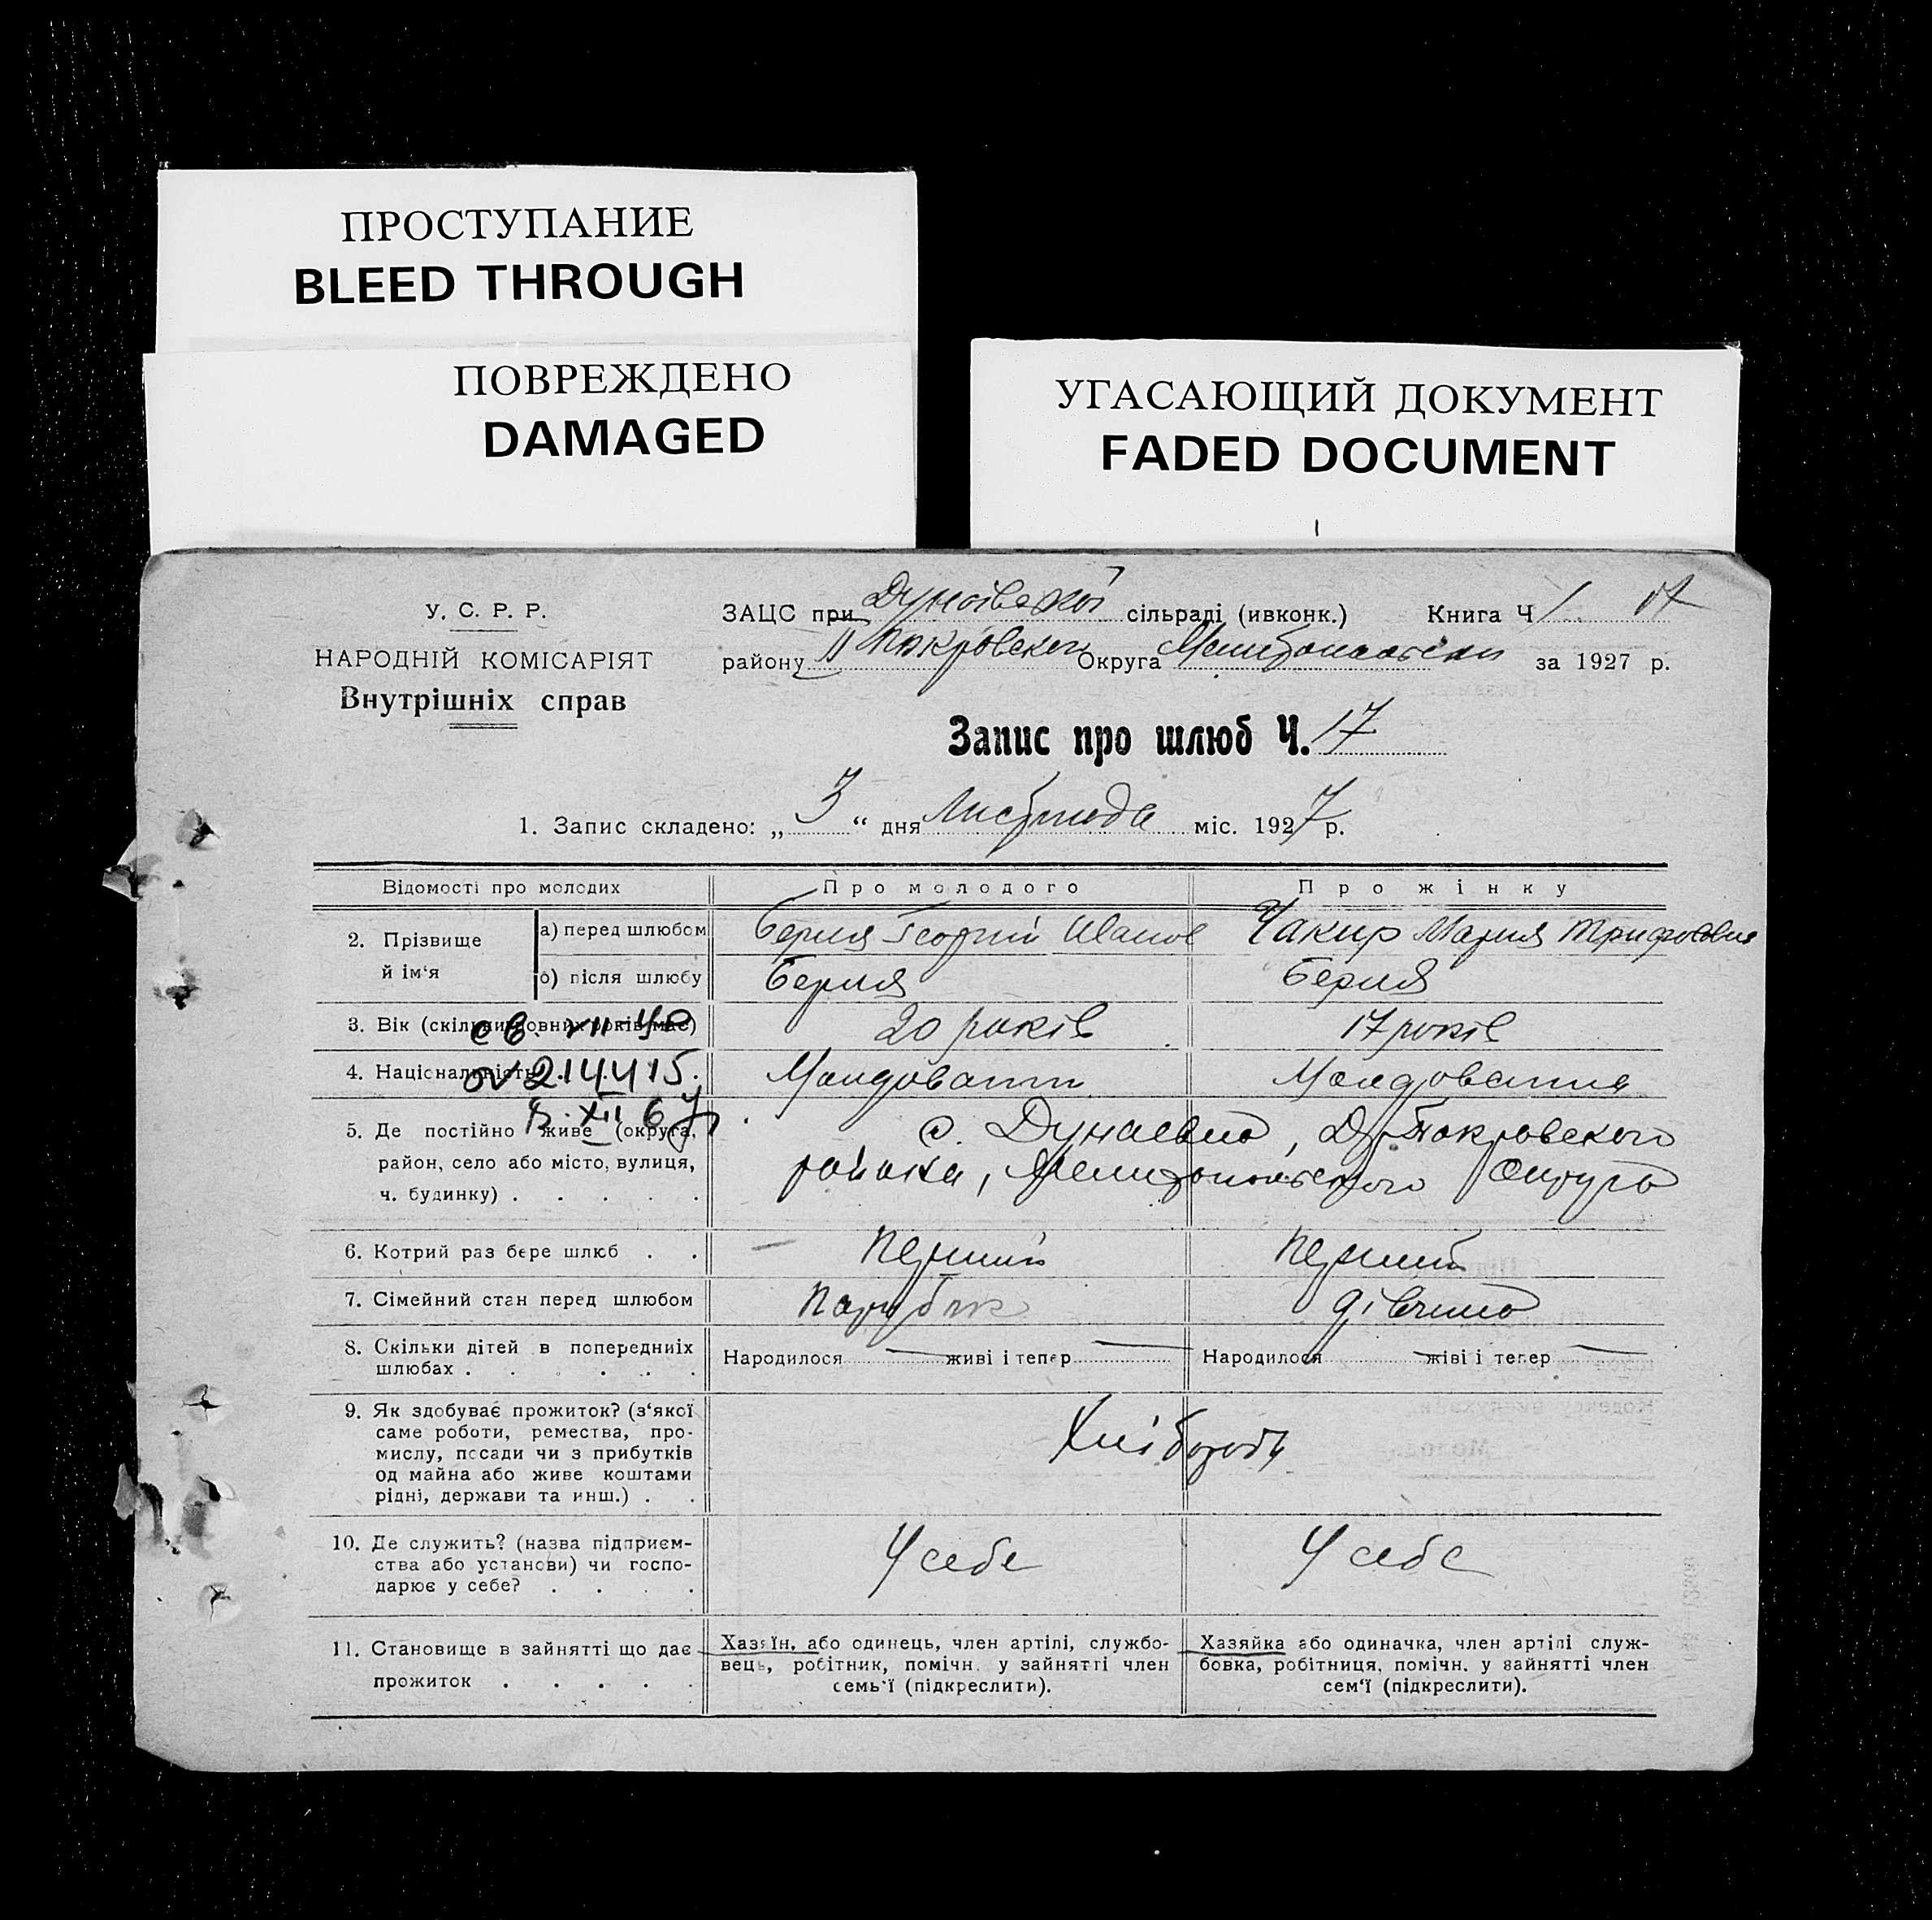 ПРОСТУПАНИЕ
BLEED THROUGH
ПОВРЕЖДЕНО
DAMAGED
УГАСАЮЩИЙ ДОКУМЕНТ
FADED DOCUMENT
У. С. Р. Р.
НАРОДНІЙ КОМІСАРІЯТ
Внутрішніх справ
ЗАЦС при Дунаївской сільраді (ивконк.) Книга Ч 1
району Покровского Округа за 1927 р.
Запис про шлюб Ч. 17
1. Запис складено: „ 3 “ дня Листопада міс. 1927 р.
Відомості про молодих
Про молодого
Про жінку
2. Прізвище й ім‘я
а) перед шлюбом
Георгий Иванов
Чакир Мария
б) після шлюбу
3. Вік (скільки повних років має)
20 років
17 років
4. Національність
Молдованин
Молдованка
214415
5. Де постійно живе (округа,
район, село або місто, вулиця,
ч. будинку) . . . . .
с. Дунаевка, Покровского
района, Мелитопольского Округа
6. Котрий раз бере шлюб . .
перший
перший
7. Сімейний стан перед шлюбом
парубок
дівчина
8. Скільки дітей в попередниіх
шлюбах . . . . . .
Народилося — живі і тепер —
Народилося — жіві і тепер —
9. Як здобуває прожиток? (з‘якої
саме роботи, ремества, про-
мислу, посади чи з прибутків
од майна або живе коштами
рідні, держави та инш.) . .
Хлібороби
10. Де служить? (назва підприєм-
ства або установи) чи госпо-
дарює у себе? . . . .
У себе
У себе
11. Становище в зайнятті що дає
прожиток . . . . .
Хазяїн, або одинець, член артілі, службо-
вець, робітник, помічн. у зайнятті член
семь‘ї (підкреслити).
Хазяйка або одиначка, член артілі служ-
бовка, робітниця, помічн. у зайнятті член
сем‘ї (підкреслити).